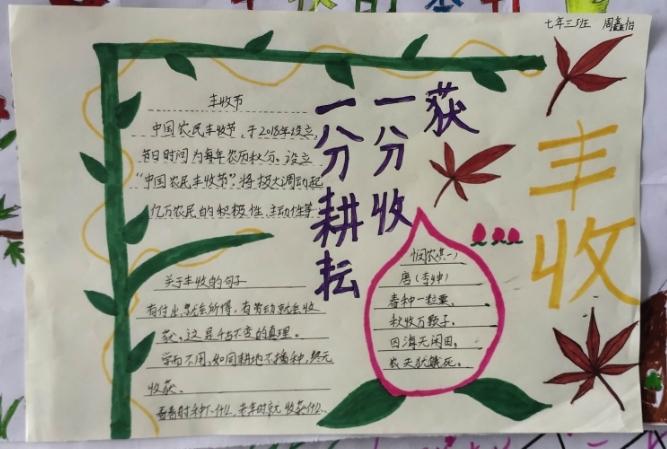 七年三班 周鑫怡
丰收
一分耕耘
一分收
获
丰收节
中国农民丰收节,于2018年设立,
节日时间为每年农历秋分。设立
“中国农民丰收节”,将极大调动起
亿万农民的积极性、主动性等
关于丰收的句子
有付出就会所得,有劳动就会收
获,这是千古不变的真理。
学而不用,如同耕地不播种,终无
收获。
春时种下什么,来年时就收获什么
悯农(其一)
唐(李绅)
春种一粒粟,
秋收万颗子。
四海无闲田,
农夫犹饿死。